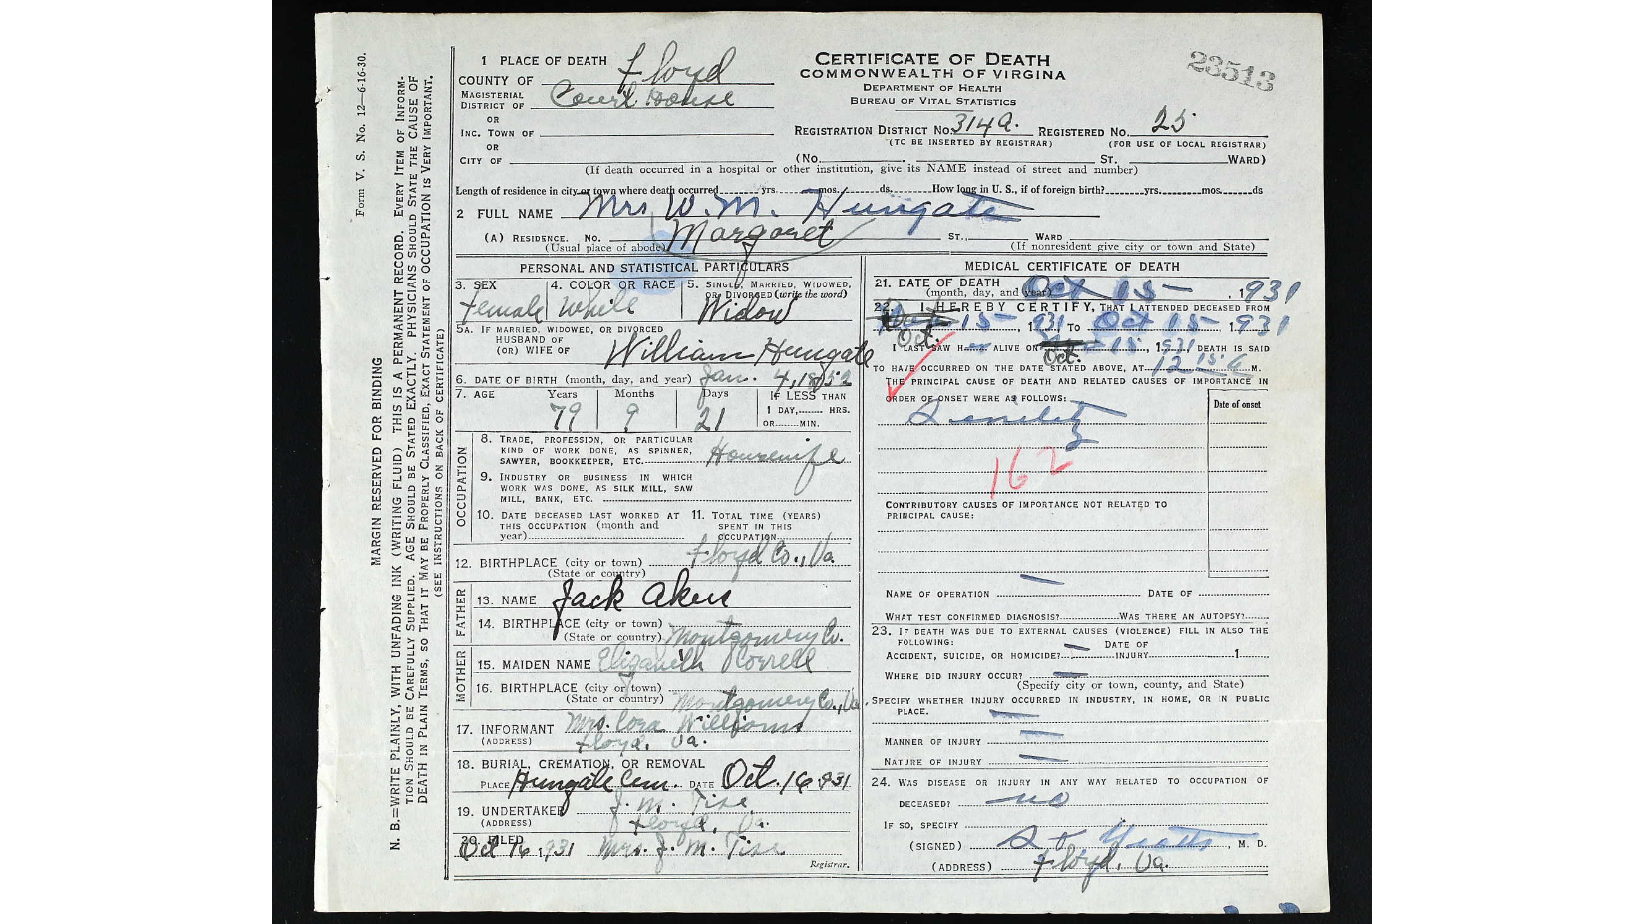 Form V. S. No. 12—6-16-30.
MARGIN RESERVED FOR BINDING
N. B.=WRITE PLAINLY, WITH UNFADING INK (WRITING FLUID) THIS IS A PERMANENT RECORD. EVERY ITEM OF INFORM-
TION SHOULD BE CAREFULLY SUPPLIED. AGE SHOULD BE STATED EXACTLY. PHYSICIANS SHOULD STATE THE CAUSE OF
DEATH IN PLAIN TERMS, SO THAT IT MAY BE PROPERLY CLASSIFIED. EXACT STATEMENT OF OCCUPATION IS VERY IMPORTANT.
(SEE INSTRUCTIONS ON BACK OF CERTIFICATE)
1 PLACE OF DEATH
COUNTY OF Floyd
MAGISTERIAL
DISTRICT OF Court House
OR
INC. TOWN OF
OR
CITY OF
CERTIFICATE OF DEATH
COMMONWEALTH OF VIRGINA
DEPARTMENT OF HEALTH
BUREAU OF VITAL STATISTICS
23513
REGISTRATION DISTRICT No. 314a. REGISTERED No. 25
(TC BE INSERTED BY REGISTRAR) (FOR USE OF LOCAL REGISTRAR)
(No. ST. WARD)
(If death occurred in a hospital or other institution, give its NAME instead of street and number)
Length of residence in city or town where death occurred yrs. mos. ds. How long in U. S., if of foreign birth? yrs. mos. ds
2 FULL NAME Mrs W. M. Hungate
Margaret
(A) RESIDENCE. No. ST., WARD
(Usual place of abode) (If nonresident give city or town and State)
PERSONAL AND STATISTICAL PARTICULARS
3. SEX 4. COLOR OR RACE 5. SINGLE, MARRIED, WIDOWED,
OR DIVORCED (write the word)
Female White Widow
5A. IF MARRIED, WIDOWED, OR DIVORCED
HUSBAND OF
(OR) WIFE OF William Hungate
6. DATE OF BIRTH (month, day, and year) Jan. 4, 1852
7. AGE Years Months Days IF LESS THAN
79 9 21 1 DAY, HRS.
OR MIN.
OCCUPATION
8. TRADE, PROFESSION, OR PARTICULAR
KIND OF WORK DONE, AS SPINNER,
SAWYER, BOOKKEEPER, ETC. Housewife
9. INDUSTRY OR BUSINESS IN WHICH
WORK WAS DONE, AS SILK MILL, SAW
MILL, BANK, ETC.
10. DATE DECEASED LAST WORKED AT 11. TOTAL TIME (YEARS)
THIS OCCUPATION (month and SPENT IN THIS
year) OCCUPATION
12. BIRTHPLACE (city or town) Floyd Co., Va.
(State or country)
FATHER
13. NAME Jack Akers
14. BIRTHPLACE (city or town)
(State or country) Montgomery Co.
MOTHER
15. MAIDEN NAME Elizabeth
16. BIRTHPLACE (city or town)
(State or country) Montgomery Co., Va.
17. INFORMANT Mrs. Cora Williams
(ADDRESS) Floyd, Va.
18. BURIAL, CREMATION, OR REMOVAL
PLACE Hungate Cem. DATE Oct. 16 931
19. UNDERTAKER J. M. Tise
(ADDRESS) Floyd, Va.
20. FILED
Oct 16, 1931 Mrs. J. M. Tise
Registrar.
MEDICAL CERTIFICATE OF DEATH
21. DATE OF DEATH
(month, day, and year) Oct 15 , 1931
22. I HEREBY CERTIFY, THAT I ATTENDED DECEASED FROM
Oct. 15 , 1931 TO Oct 15 1931
I LAST SAW H ALIVE ON Oct. 15 , 1931 DEATH IS SAID
TO HAVE OCCURRED ON THE DATE STATED ABOVE, AT M.
THE PRINCIPAL CAUSE OF DEATH AND RELATED CAUSES OF IMPORTANCE IN
ORDER OF ONSET WERE AS FOLLOWS: Date of onset
Senility
162
CONTRIBUTORY CAUSES OF IMPORTANCE NOT RELATED TO
PRINCIPAL CAUSE:
NAME OF OPERATION DATE OF
WHAT TEST CONFIRMED DIAGNOSIS? WAS THERE AN AUTOPSY?
23. IF DEATH WAS DUE TO EXTERNAL CAUSES (VIOLENCE) FILL IN ALSO THE
FOLLOWING: DATE OF
ACCIDENT, SUICIDE, OR HOMICIDE? INJURY 1
WHERE DID INJURY OCCUR?
(Specify city or town, county, and State)
SPECIFY WHETHER INJURY OCCURRED IN INDUSTRY, IN HOME, OR IN PUBLIC
PLACE.
MANNER OF INJURY
NATURE OF INJURY
24. WAS DISEASE OR INJURY IN ANY WAY RELATED TO OCCUPATION OF
DECEASED? no
IF SO, SPECIFY
(SIGNED) , M. D.
(ADDRESS) Floyd, Va.